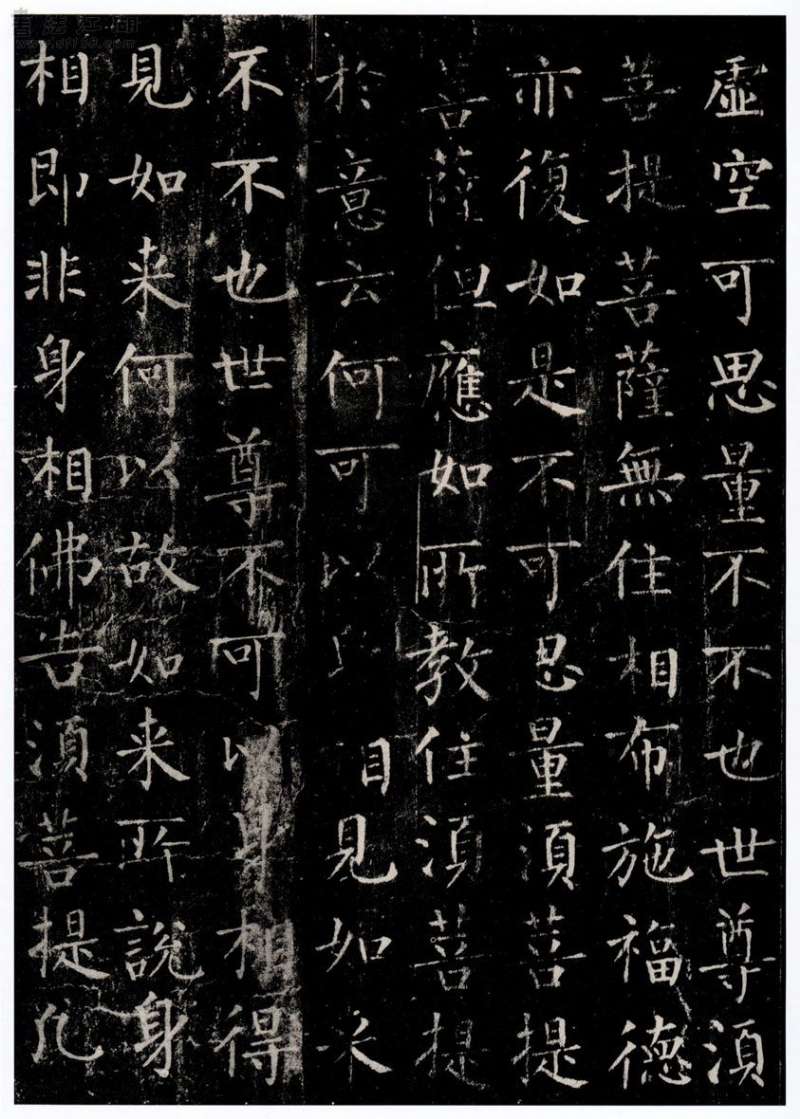 虛空可思量不不也世尊須
菩提菩薩無住相布施福德
亦復如是不可思量須菩提
菩薩但應如所教住須菩提
於意云何可以相見如来
不不也世尊不可以身相得
見如来何以故如来所說身
相即非身相佛告須菩提凡